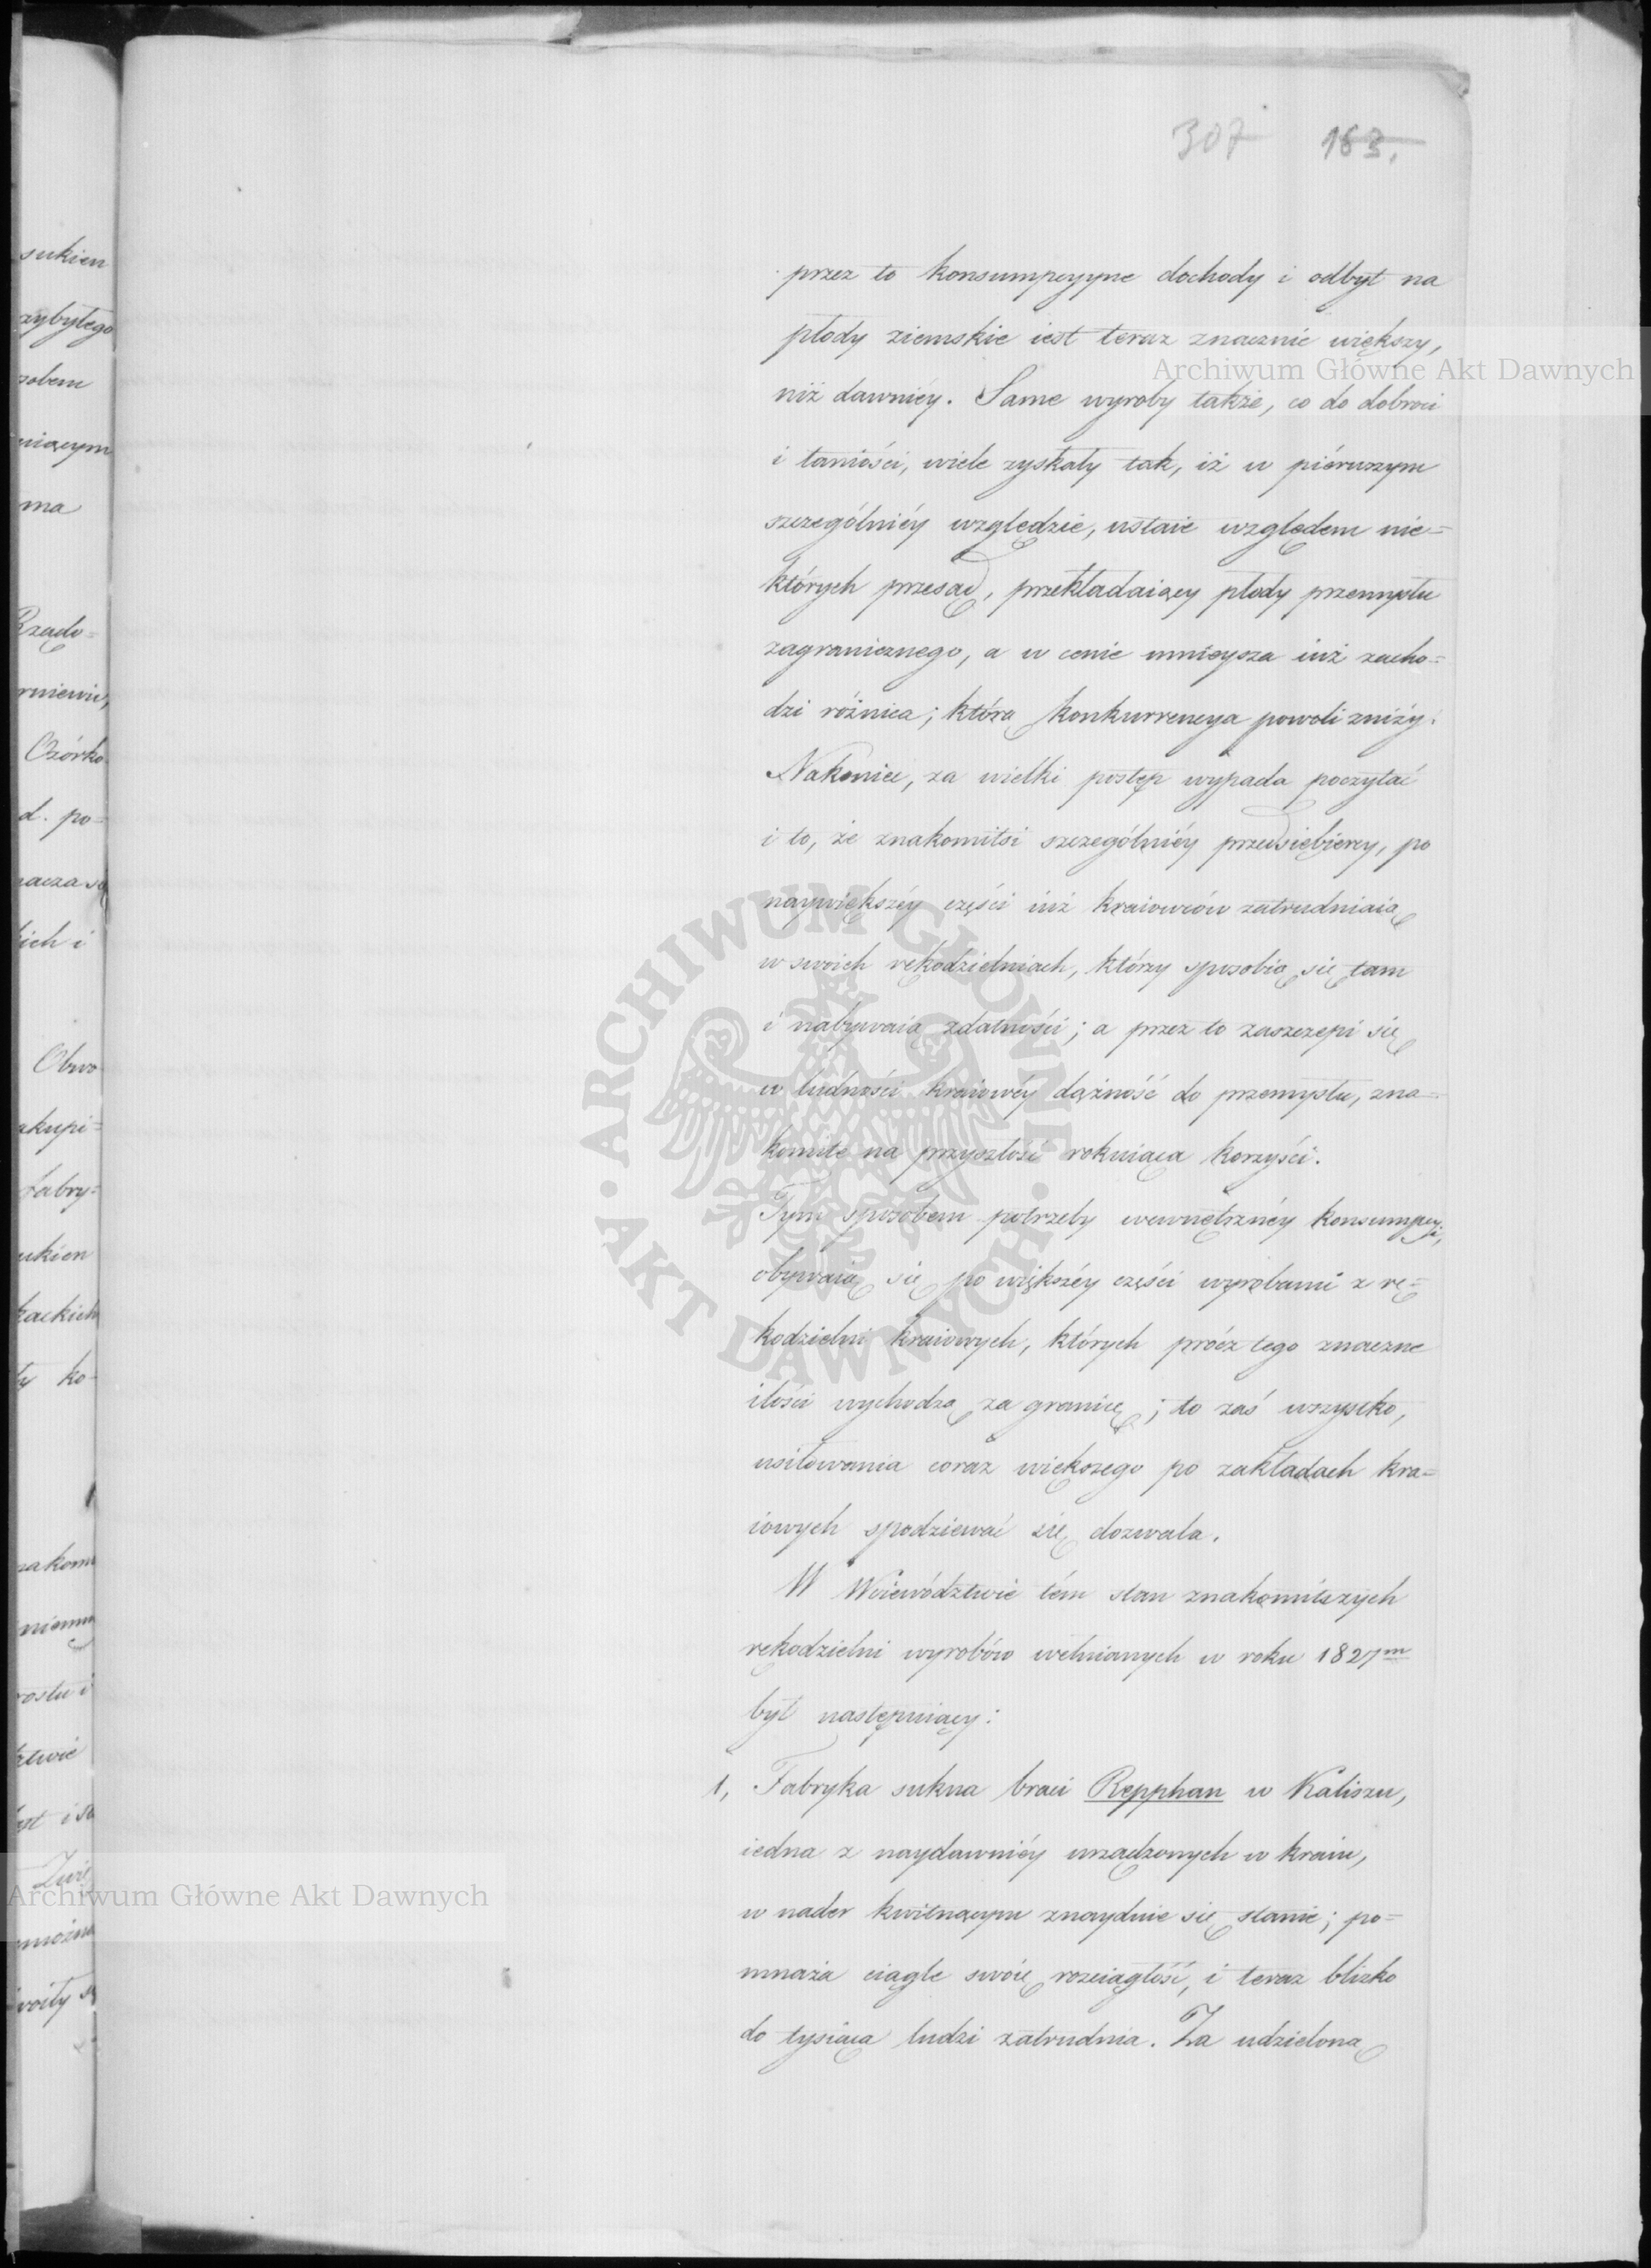 307 163.
przez to konsumpcyyne dochody i odbyt na
płody ziemskie iest teraz znacznie większy,
niż dawniéy. Same wyroby także, co do dobroci
i taniości, wiele zyskały tak, iż w piérwszym
szczególniéy względzie, ustaie względem nie=
których przesąd, przekładaiący płody przemysłu
zagranicznego, a w cenie mnieysza iuż zacho=
dzi różnica; którą konkurrencya powoli zniży.
Nakoniec, za wielki postęp wypada poczytać
i to, że znakomitsi szczególniéy przedsiębiercy, po
naywiększéy części iuż kraiowców zatrudniaią
w swoich rękodzielniach, którzy sposobią się tam
i nabywaią zdatności; a przez to zaszczepi się
w ludności kraiowéy dążność do przemysłu, zna=
komite na przyszłość rokuiąca korzyści.
Tym sposobem potrzeby wewnętrznéy konsumpcyi,
obywaią się po większéy części wyrobami z rę=
kodzielni kraiowych, których prócz tego znaczne
ilości wychodzą za granicę; to zaś wszystko,
usiłowania coraz większego po zakładach kra=
iowych spodziewać się dozwala.
W Woiewództwie tém stan znakomitszych
rękodzielni wyrobów wełnianych w roku 1827m
był następuiący:
1, Fabryka sukna braci Repphan w Kaliszu,
iedna z naydawniéy urządzonych w kraiu,
w nader kwitnącym znayduie się stanie; po=
mnaża ciągle swoię rozciągłość, i teraz blizko
do tysiąca ludzi zatrudnia. Za udzieloną
sukien
zybyłego
sobem
uiącym
ma
Rządo=
rniewie,
Ozórko
d. po=
nacza są
kich i
Obwo
akupi=
fabry=
ukien
kackich
ty ko-
nakomi
nianą
rostu i
ztwie
est i są
Zwię
można
woity są
Archiwum Główne Akt Dawnych
ARCHIWUM GŁÓWNE
AKT DAWNYCH
Archiwum Główne Akt Dawnych